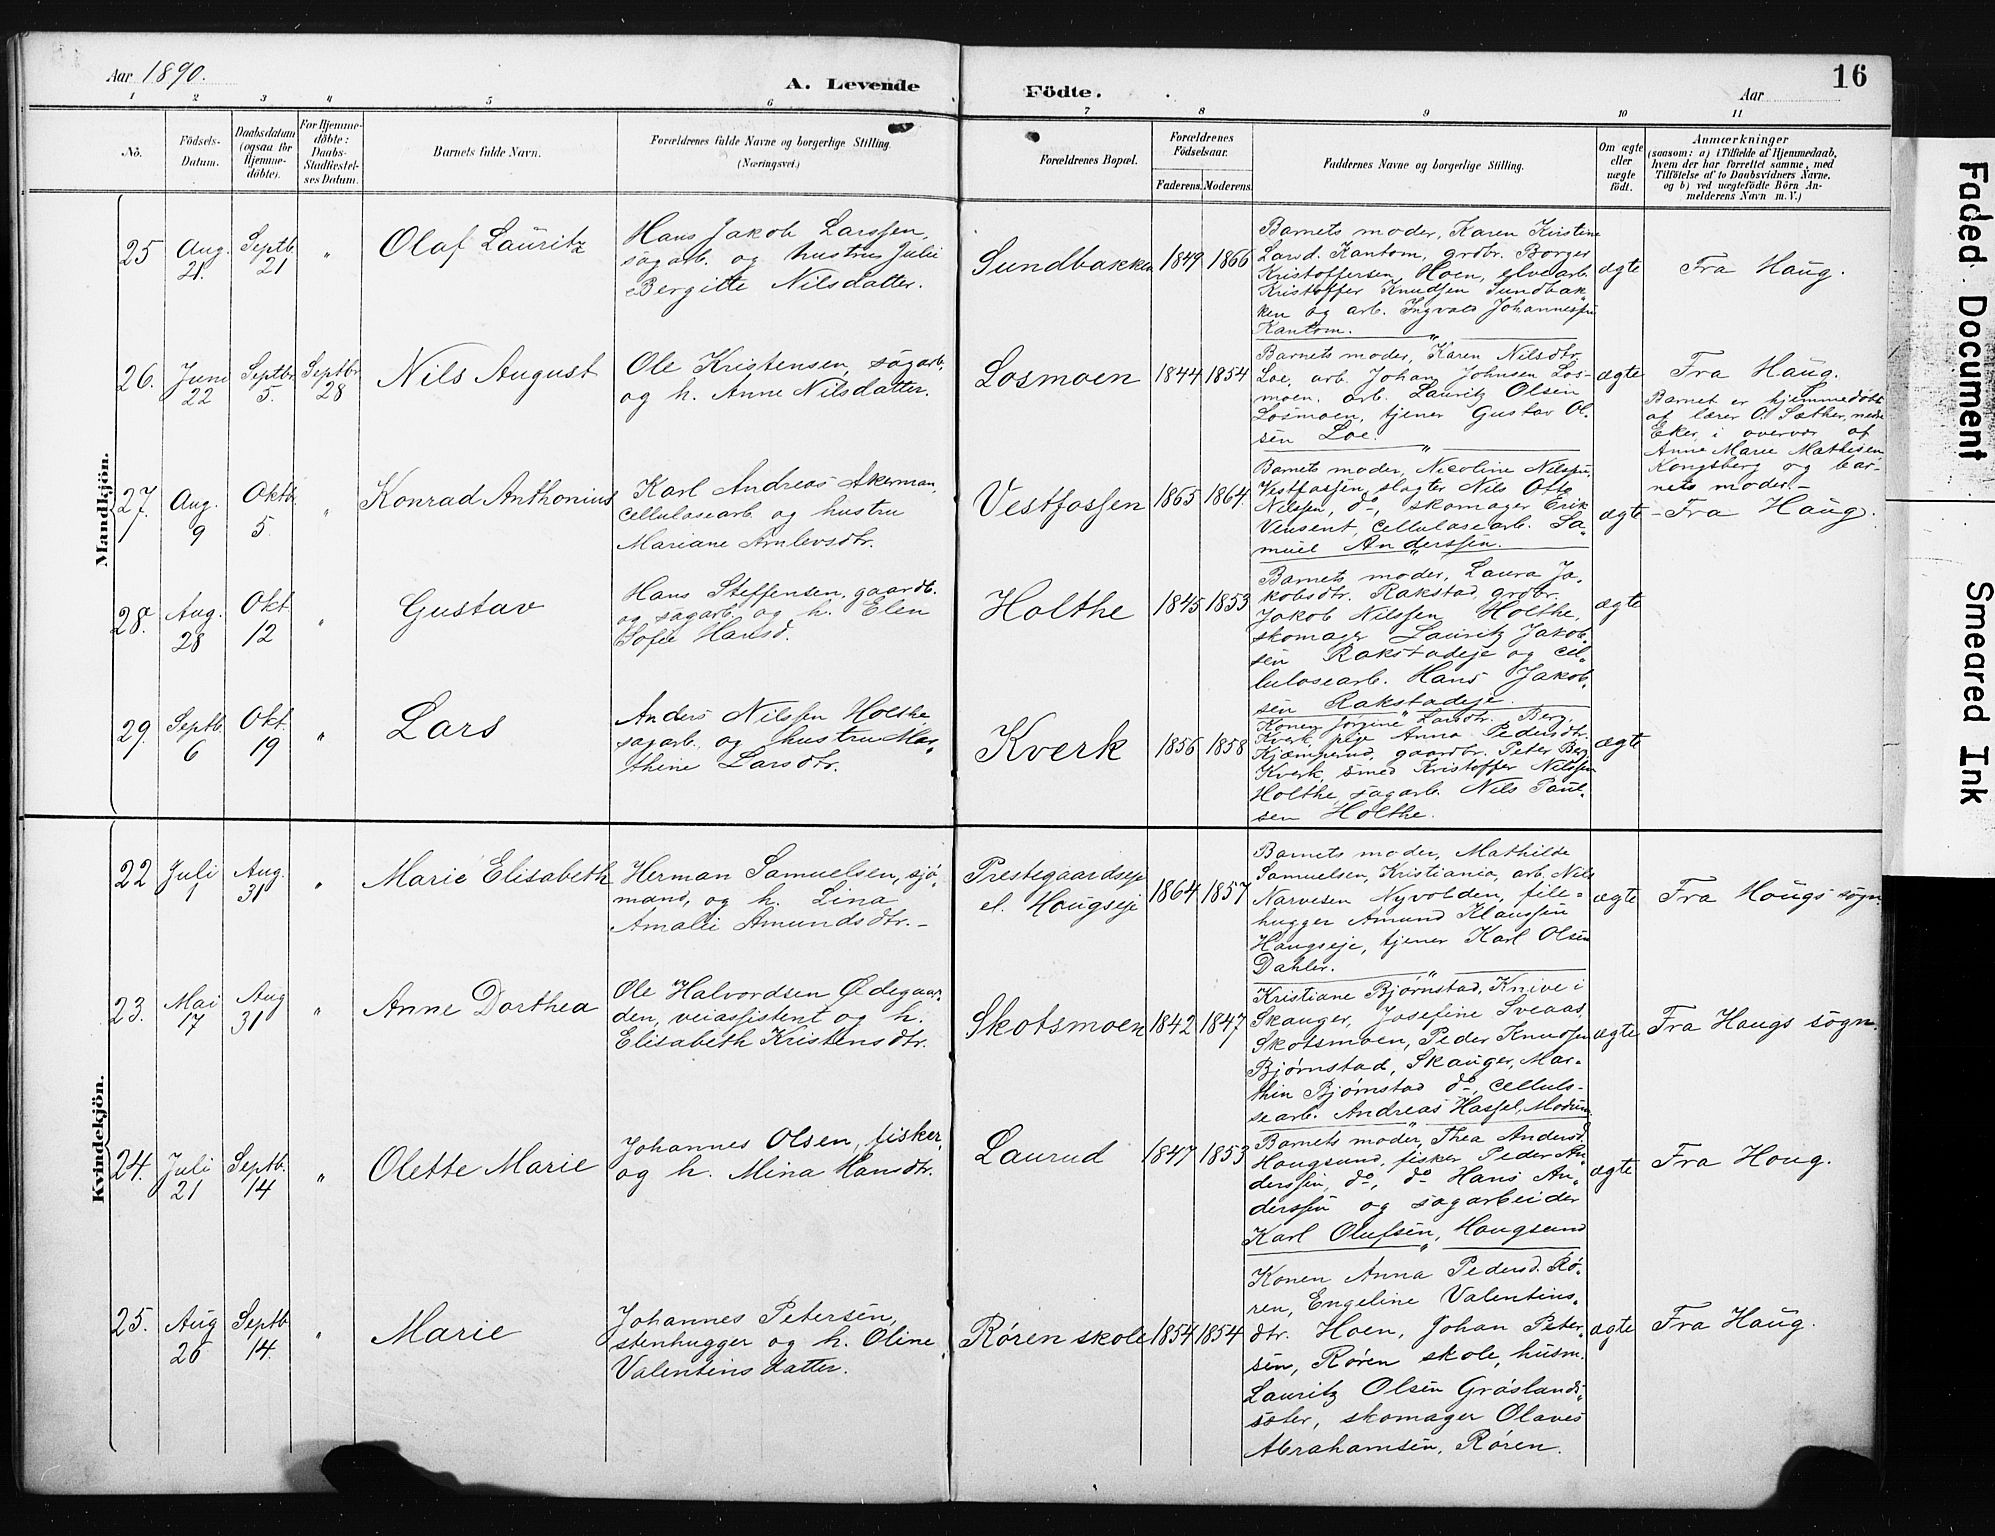 Aar 1890.
A. Levende Födte.
Aar
16
1 2 3 4 5 6 7 8 9 10 11
No.
Födsels-
Datum.
Daabsdatum
(ogsaa for
Hjemme-
döbte).
For Hjemme-
döbte:
Daabs-
Stadfæstel-
ses Datum.
Barnets fulde Navn.
Forældrenes fulde Navne og borgerlige Stilling.
(Næringsvei.)
Forældrenes Bopæl.
Forældrenes
Födselsaar.
Faderens. Moderens.
Faddernes Navne og borgerlige Stilling.
Om ægte
eller
uægte
födt.
Anmærkninger
(saasom: a) i Tilfælde af Hjemmedaab,
hvem der har forrettet samme, med
Tilföielse af to Daabsvidners Navne,
og b) ved uægtefödte Börn An-
melderens Navn m. V.)
Mandkjön.
25
Aug.
21.
Septb.
21
"
Olaf Lauritz
Hans Jakob Larssen,
sagarb. og hustru Julie
Bergitte Nilsdatter.
Sundbakken
1849 1866
Barnets moder, Karen Kristine
Larsd. Kantom, grdbr. Borger
Kristoffersen, Hoen, elvearb.
Kristoffer Knudsen Sundbak-
ken og arb. Ingvald Johannessen
Kantom.
ægte
Fra Haug.
26.
Juni
22
Septbr.
5.
Septbr.
28
Nils August
Ole Kristensen, sagarb.
og h. Anne Nilsdatter.
Losmoen
1844 1854
Barnets moder, Karen Nilsdtr.
Loe, arb. Johan Johnsen Los-
moen, arb. Lauritz Olsen
Losmoen, tjener Gustav Ol-
sen Loe.
ægte
Fra Haug.
Barnet er hjemmedøbt
af lærer O. Sæther, nedre
Eker, i overvær af
Anne Marie Mathisen
Kongsberg og bar-
nets moder.-
27.
Aug.
9
Oktb.
5.
"
Konrad Anthonius
Karl Andreas Akerman,
cellulosearb. og hustru
Mariane Arnlevsdtr.
Vestfossen
1865 1864.
Barnets moder, Nicoline Nilssen,
Vestfossen, slagter Nils Otto
Nilssen, do, skomager Erik
Vinsent, cellulosearb. Sa-
muel Anderssen.
ægte
- Fra Haug.
28.
Aug.
28
Okt.
12
"
Gustav
Hans Steffensen, gaardb.
og sagarb. og h. Elen
Sofie Hansd.
Holthe
1845 1853
Barnets moder, Laura Ja-
kobsdtr. Rakstad, grdbr.
Jakob Nilssen Holthe,
skomager Lauritz Jakob-
sen Rakstadeje og cel-
lulosearb. Hans Jakob-
sen Rakstadeje.
ægte
29.
Septb.
6
Okt.
19
"
Lars
Anders Nilssen Holthe
sagarb. og hustru Mar-
thine Larsdtr.
Kverk
1856 1858
Konen Jørgine Larsdtr. Berg,
Kverk, pige Anna Pedersdtr.
Kjæmperud, gaardbr. Peter Berg
Kverk, smed Kristoffer Nilssen
Holthe, sagarb. Nils Paul-
sen Holthe.
ægte
Kvindekjön.
22
Juli
1
Aug.
31
"
Marie Elisabeth
Herman Samuelsen, sjø-
mand, og h. Lina
Amalie Amundsdtr.-
Prestegaardseje
el. Haugseje
1864 1857
Barnets moder, Mathilde
Samuelsen, Kristiania, arb. Nils
Narvesen Nyvolden, fill-
hugger Amund Klaussen
Haugseje, tjener Karl Olsen
Dahler.
ægte
Fra Haugs sogn.
23.
Mai
17
Aug
31
"
Anne Dorthea
Ole Halvordsen Ødegaar-
den, veiassistent og h.
Elisabeth Kristensdtr.
Skotsmoen
1842 1847
Kristiane Bjørnstad, Knive i
Skauger, Josefine Sveaas,
Skotsmoen, Peder Knudsen
Bjørnstad, Skauger, Mar-
thin Bjørnstad do, cellulo-
searb. Andreas Hassel, Modum.
ægte
Fra Haugs sogn.
24.
Juli
21
Septb.
14
"
Olette Marie
Johannes Olsen, fisker,
og h. Mina Hansdtr.
Laurud
1847 1853
Barnets moder, Thea Andersd.
Haugsund, fisker Peder An-
derssen, do, do Hans An-
derssen og sagarbeider
Karl Olufsen, Haugsund
ægte
Fra Haug.
25.
Aug
26
Septb
14.
"
Marie
Johannes Petersen,
stenhugger og h. Oline
Valentinsdatter.
Røren skole
1854 1854
Konen Anna Pedersd. Rø-
ren, Engeline Valentins-
dtr. Hoen, Johan Peter-
sen, Røren skole, husm.
Lauritz Olsen Grøslands-
søter, skomager Olaves
Abrahamsen, Røren.
ægte
Fra Haug.
Faded Document
Smeared Ink